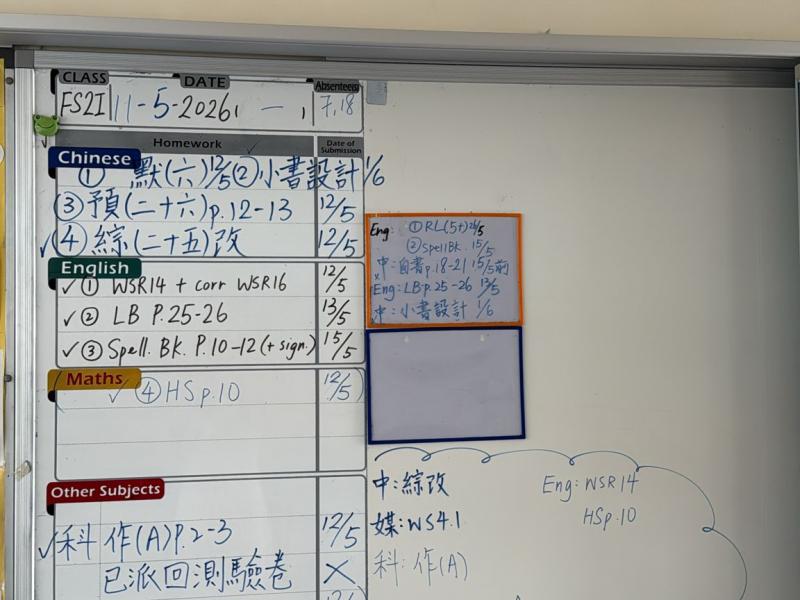 CLASS DATE Absentee(s)
FS2I 11-5-2026, 一, 7,18
Homework Date of Submission
Chinese
① 默(六)12/5 ②小書設計 1/6
③預(二十六)p.12-13 12/5
✓④綜(二十五)改 12/5
English
✓① WSR14 + corr WSR16 12/5
✓② LB P.25-26 13/5
✓③ Spell. BK. P.10-12(+ sign.) 15/5
Maths
(✓④HSp.10 12/5)
Other Subjects
✓科 作(A)P.2-3 12/5
已派回測驗卷 X
Eng: ①RL(5+)
②SpellBk. 15/5
中:自書p.18-21 15/5前
Eng: LB p.25-26 13/5
中:小書設計 1/6
中:綜改
媒:WS4.1
科:作(A)
Eng: WSR14
HSp.10